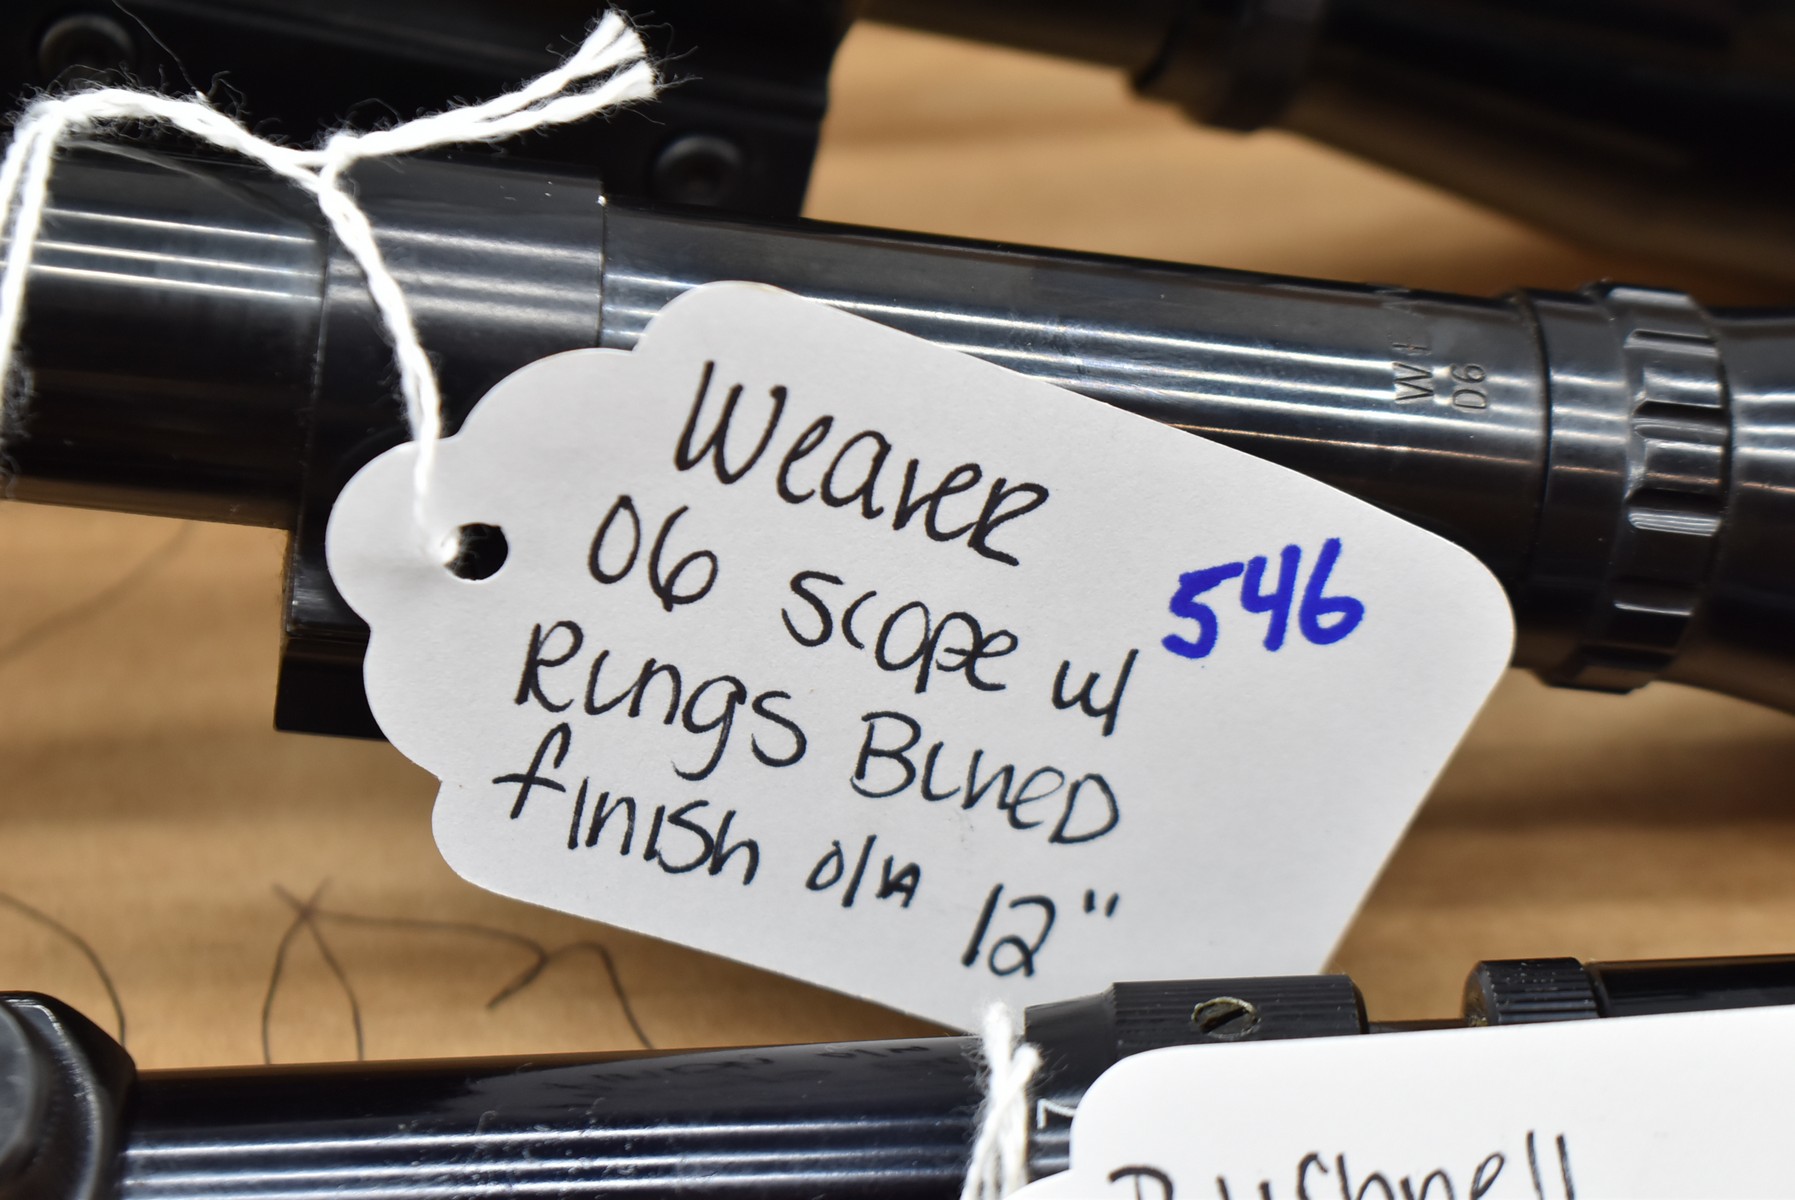 Weaver
06 scope w/
Rings Blued
finish o/a 12"
546
W+
06
7
Bushnell